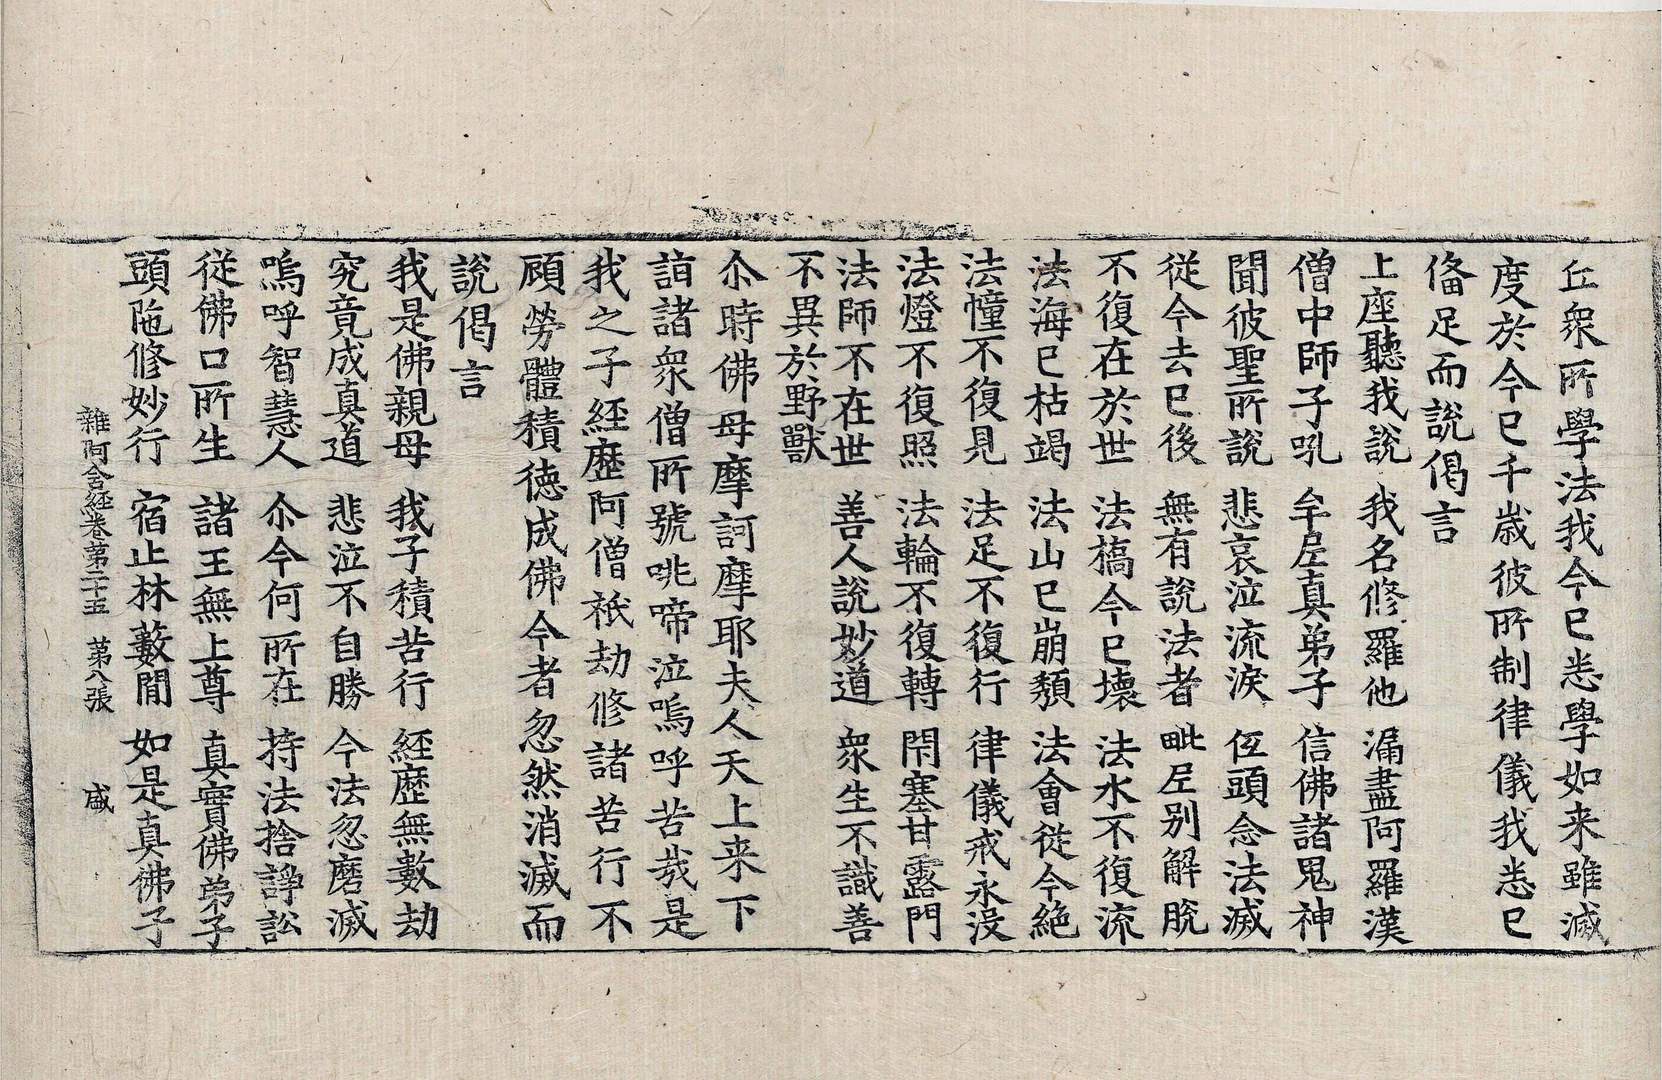 丘衆所學法我今已悉學如来雖滅
度於今已千歲彼所制律儀我悉已
俻足而說偈言
上座聽我說　我名修羅他　漏盡阿羅漢
僧中師子吼　牟𡰱真弟子　信佛諸鬼神
聞彼聖所說　悲哀泣流淚　伍頭念法滅
從今去已後　無有說法者　毗𡰱别解脫
不復在於世　法橋今已壞　法水不復流
法海已枯竭　法山已崩頽　法會從今絶
法幢不復見　法足不復行　律儀戒永沒
法燈不復照　法輪不復轉　閇塞甘露門
法師不在世　善人說妙道　衆生不識善
不異於野獸
尒時佛母摩訶摩耶夫人天上来下
詣諸衆僧所號咷啼泣嗚呼苦哉是
我之子經歷阿僧祇劫修諸苦行不
顧勞體積德成佛今者忽然消滅而
說偈言
我是佛親母　我子積苦行　經歷無數劫
究竟成真道　悲泣不自勝　今法忽磨滅
嗚呼智慧人　尒今何所在　持法捨諍訟
從佛口所生　諸王無上尊　真實佛弟子
頭陁修妙行　宿止林藪間　如是真佛子
雜阿含經卷第二十五　第八張　咸